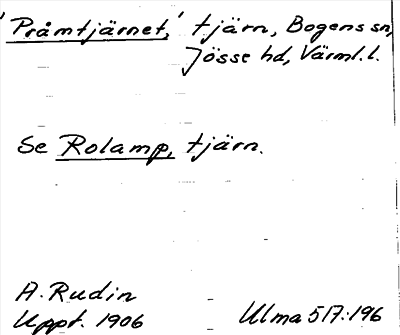 'Pråmtjärnet,' tjärn, Bogens sn,
Jösse hd, Värml. l.
Se Rolamp, tjärn.
A. Rudin
Uppt. 1906
Ulma 517:196